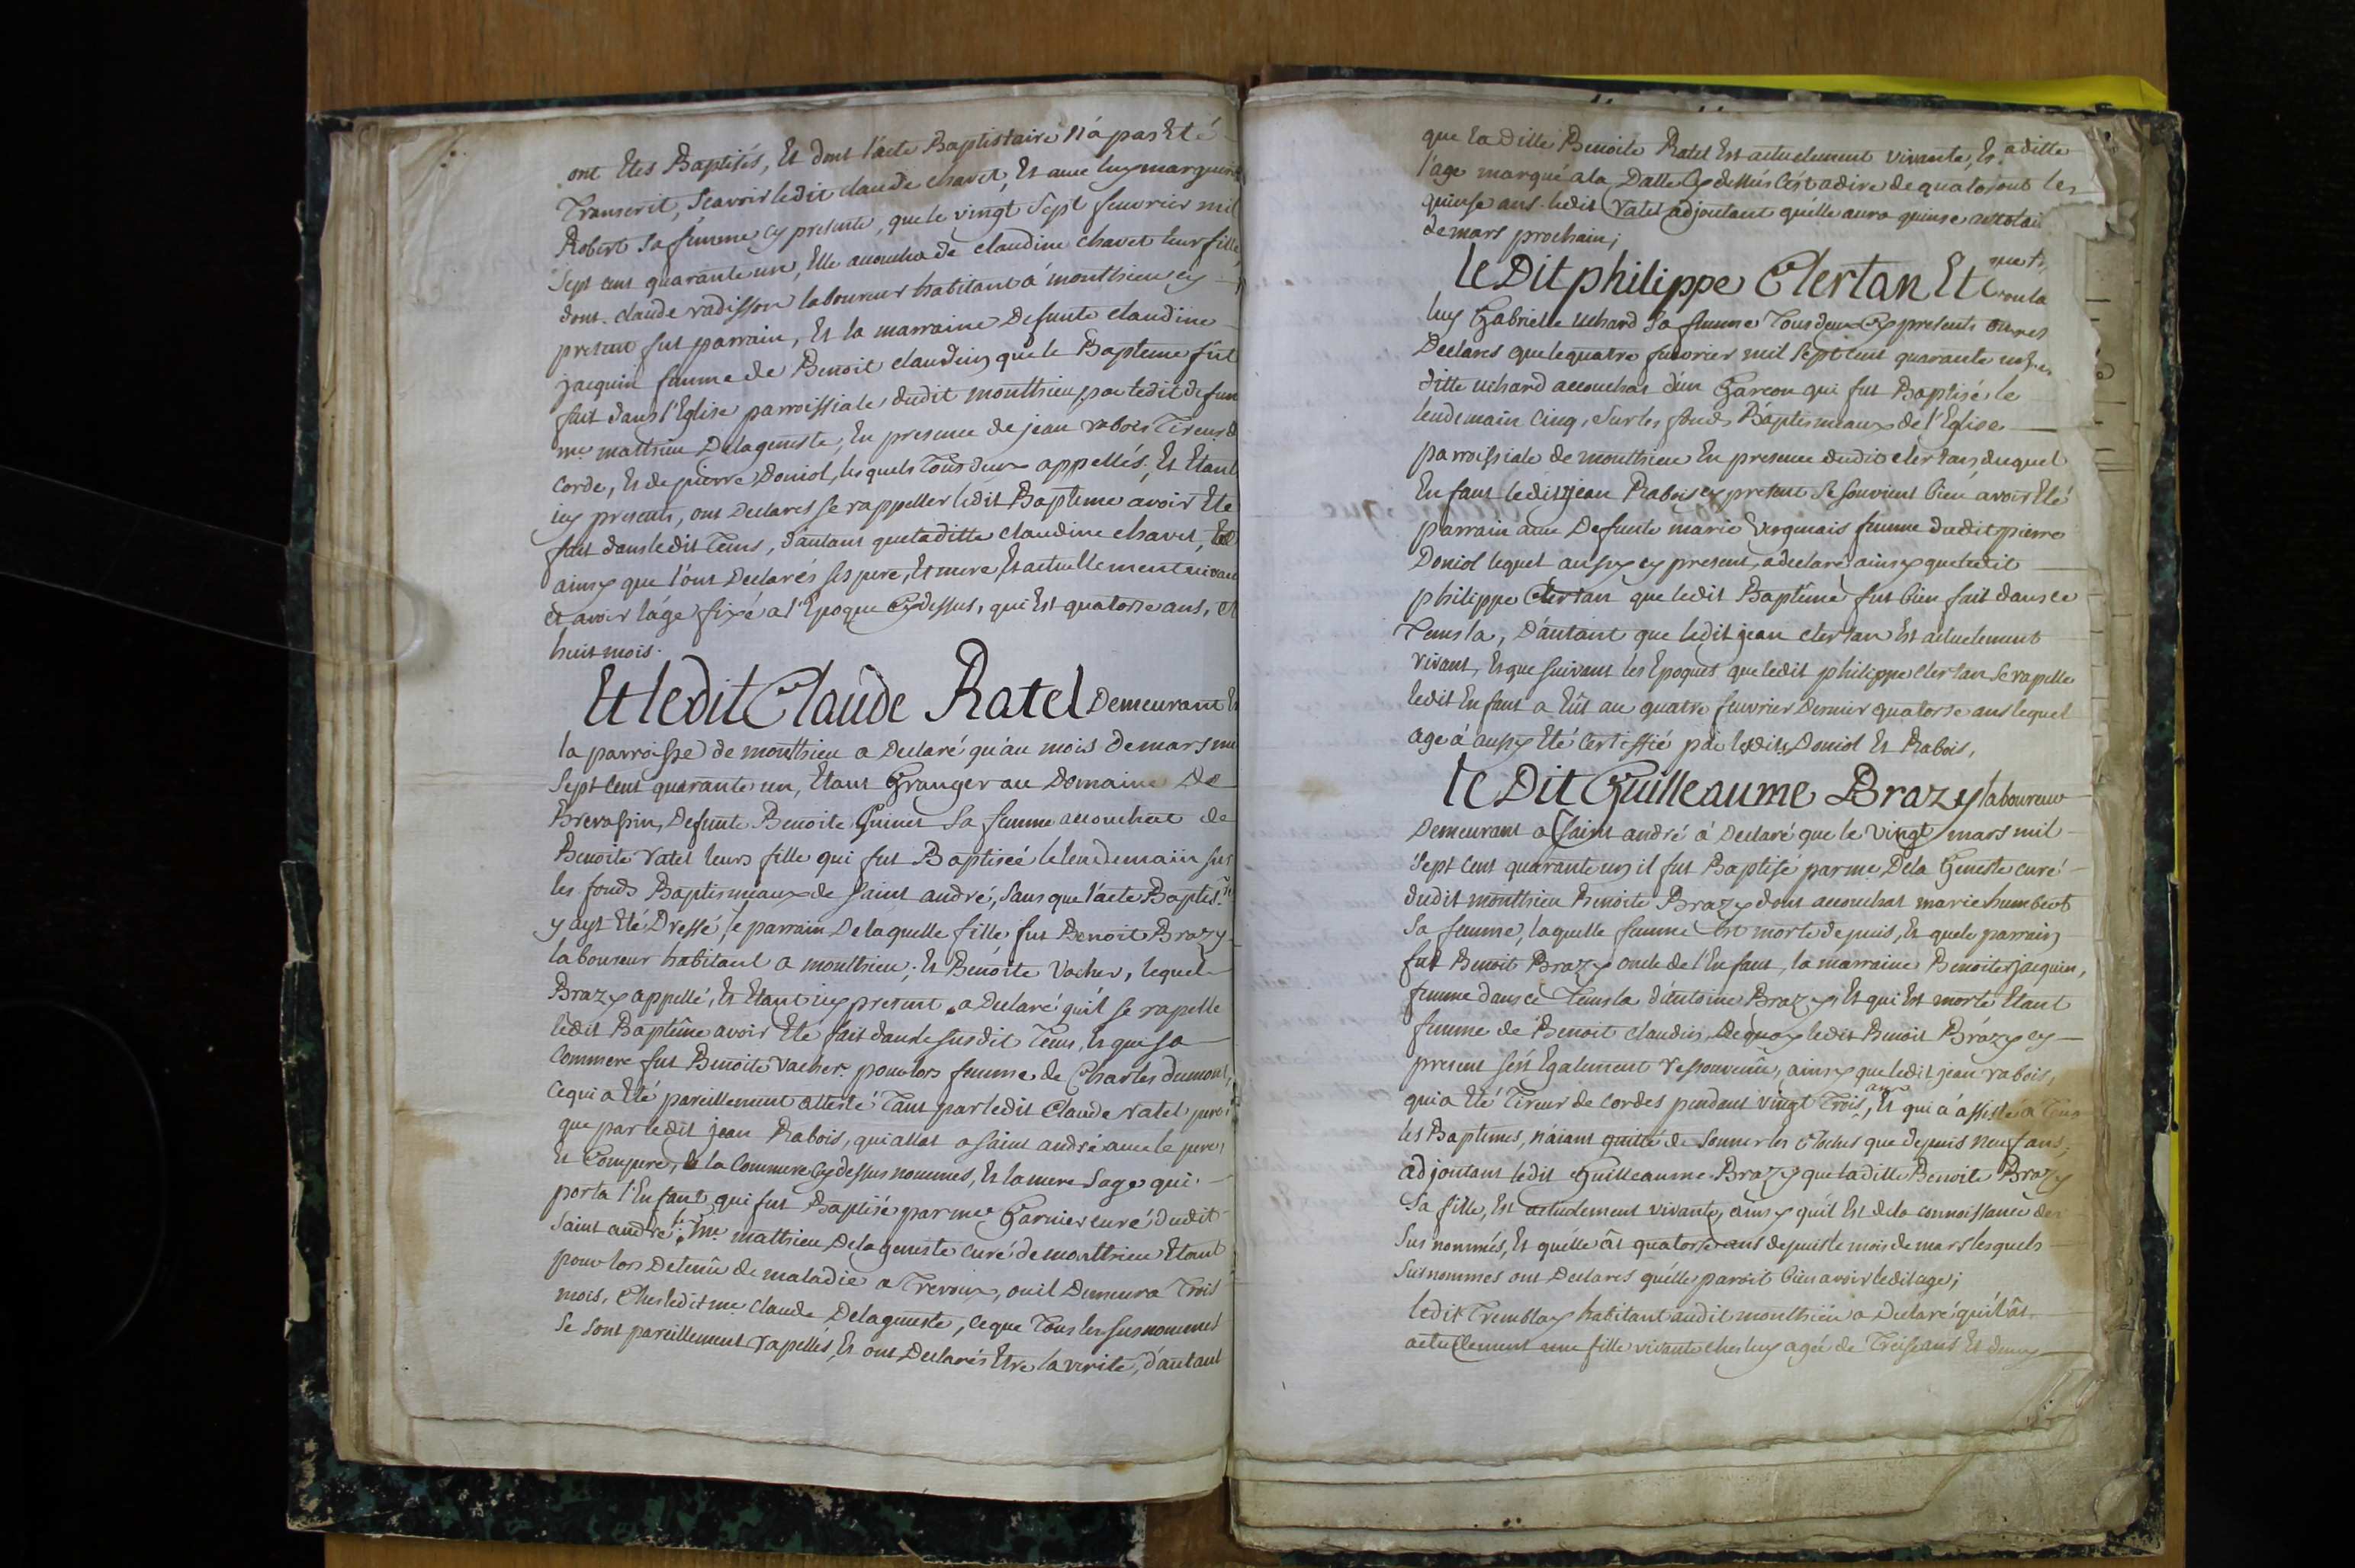 ont Etes Baptisés, Et dont l'acte Baptistaire n'a pas Eté
Transcrit, Scavoir ledit claude chavet, Et avec luy marguerit
Robert Sa femme cy presente, que le vingt Sept feuvrier mil
Sept cent quarante un, Elle accoucha de claudine chavet leur fille
dont claude radisson laboureur habitant a monthieu cy
present fut parrain, Et la marraine Defunte claudine
jacquin femme de Benoit claudin, que le Bapteme fût
fait dans l'Eglise parroissiale dudit monthieu, par ledit defun
mre matthieu Delageneste, En presence de jean rabois Tireur d
corde, Et de pierre Doniol, lesquels Tous deux appellés, Et Etant
icy presents, ont Declarés se rappeller ledit Bapteme avoir Ete
fait dans ledit Tems, d'autant que laditte claudine chavet, Est
ainsy que l'ont Declarés ses pere, Et mere Est actuellement vivan
et avoir l'âge fixé a l'Epoque Cydessus, qui Est quatorse ans, et
huit mois.
Et ledit Claude Ratel Demeurant En
la parroisse de monthieu a Declaré qu'au mois de mars mil
Sept cent quarante un, Etant Granger au Domaine De
Brevassin, Defunte Benoite Guinet Sa femme accouchat de
Benoite ratel leurs fille qui fut Baptiseé le lendemain sur
les fonds Baptismeaux de Saint andré, Sans que l'acte Baptis.re
y ayt Eté Dressé, le parrain De laquelle fille fut Benoit Brazy
laboureur habitant a monthieu, Et Benoite Vacher, lequel
Brazy appellé, Et Etant icy present, a Declaré qu'il se rapelle
ledit Baptême avoir Eté fait dans le susdit Tems, Et que sa
Commere fut Benoite Vacher pour lors femme de Charles dumont,
ce qui a Eté pareillement attesté Tant par ledit Claude ratel pere
que par ledit jean Rabois, qui allat a Saint andré avec le pere,
Et Compere, Et la Commere Cydessus nommés, Et la mere Sage qui
porta l'Enfant, qui fut Baptisé par mre Garnier curé dudit
Saint andré; mre matthieu Delageneste curé de monthieu Etant
pour lors Detenû de maladie a Trevoux, ou il Demeura Trois
mois, Ches ledit mre claude Delageneste, ce que Tous les susnommés
se sont pareillement rapellés, Et ont Declarés Etre la verité, d'autant
que la Ditte Benoite Ratel Est actuelement vivante, Et a ditte
l'age marqué a la Datte Cydessus C'est adire de quatorse
quinse ans. ledit ratel adjoutant qu'elle aura quinse ans
de mars prochain;
Le Dit philippe Clertan Et
luy Gabrielle uchard Sa femme Tous deux Cy presents
Declarés que le quatre feuvrier mil Sept cent quarante
ditte uchard accouchat d'un Garcon qui fut Baptisé le
lendemain Cinq, Sur les fonds Baptismeaux de l'Eglise
parroissiale de monthieu En presence dudit clertan, duquel
Enfant ledit jean Rabois cy present Se Souvient bien avoir Eté
parrain avec Defunte marie Verguais femme dudit pierre
Doniol lequel aussy cy present, a declaré ainsy que ledit
philippe Clertan que ledit Baptême fut bien fait dans ce
Tems la, D'autant que ledit jean clertan Est actuelement
vivant, Et que suivant les Epoques que ledit philippe clertan se rapelle
ledit Enfant a Eût au quatre feuvrier Dernier quatorse ans lequel
age à aussy Eté Certiffié par lesdits Doniol Et Rabois,
Le Dit Guilleaume Brazy laboureur
Demeurant a Saint andré à Declaré que le Vingt mars mil
Sept cent quarante un, il fut Baptisé par mre Dela Geneste curé
dudit monthieu Benoite Brazy dont accouchat marie humbert
Sa femme, laquelle femme Est morte depuis, Et que le parrain
fut Benoit Brazy oncle de l'Enfant, la marraine Benoite jacquin,
femme dans ce Tems la d'Antoine Brazy, Et qui Est morte Etant
femme de Benoit claudin, De quoy ledit Benoit Brazy cy
present s'est Egalement ressouvenû, ainsy que ledit jean rabois,
qui a Eté Tireur de cordes pendant vingt Trois ans, Et qui a assisté a Tous
les Baptemes, n'aiant quitté de Sonner les Cloches que depuis neuf ans;
adjoutant ledit Guilleaume Brazy que laditte Benoite Brazy
Sa fille, Est actuelement vivante, ainsy qu'il Est dela connoissance des
Sus nommés, Et qu'elle ât quatorse ans depuis le mois de mars lesquels
Susnommés ont Declarés qu'elle paroit bien avoir ledit age;
ledit Tremblay habitant audit monthieu a Declaré qu'il ât
actuellement une fille vivante ches luy agée de Treise ans Et demy